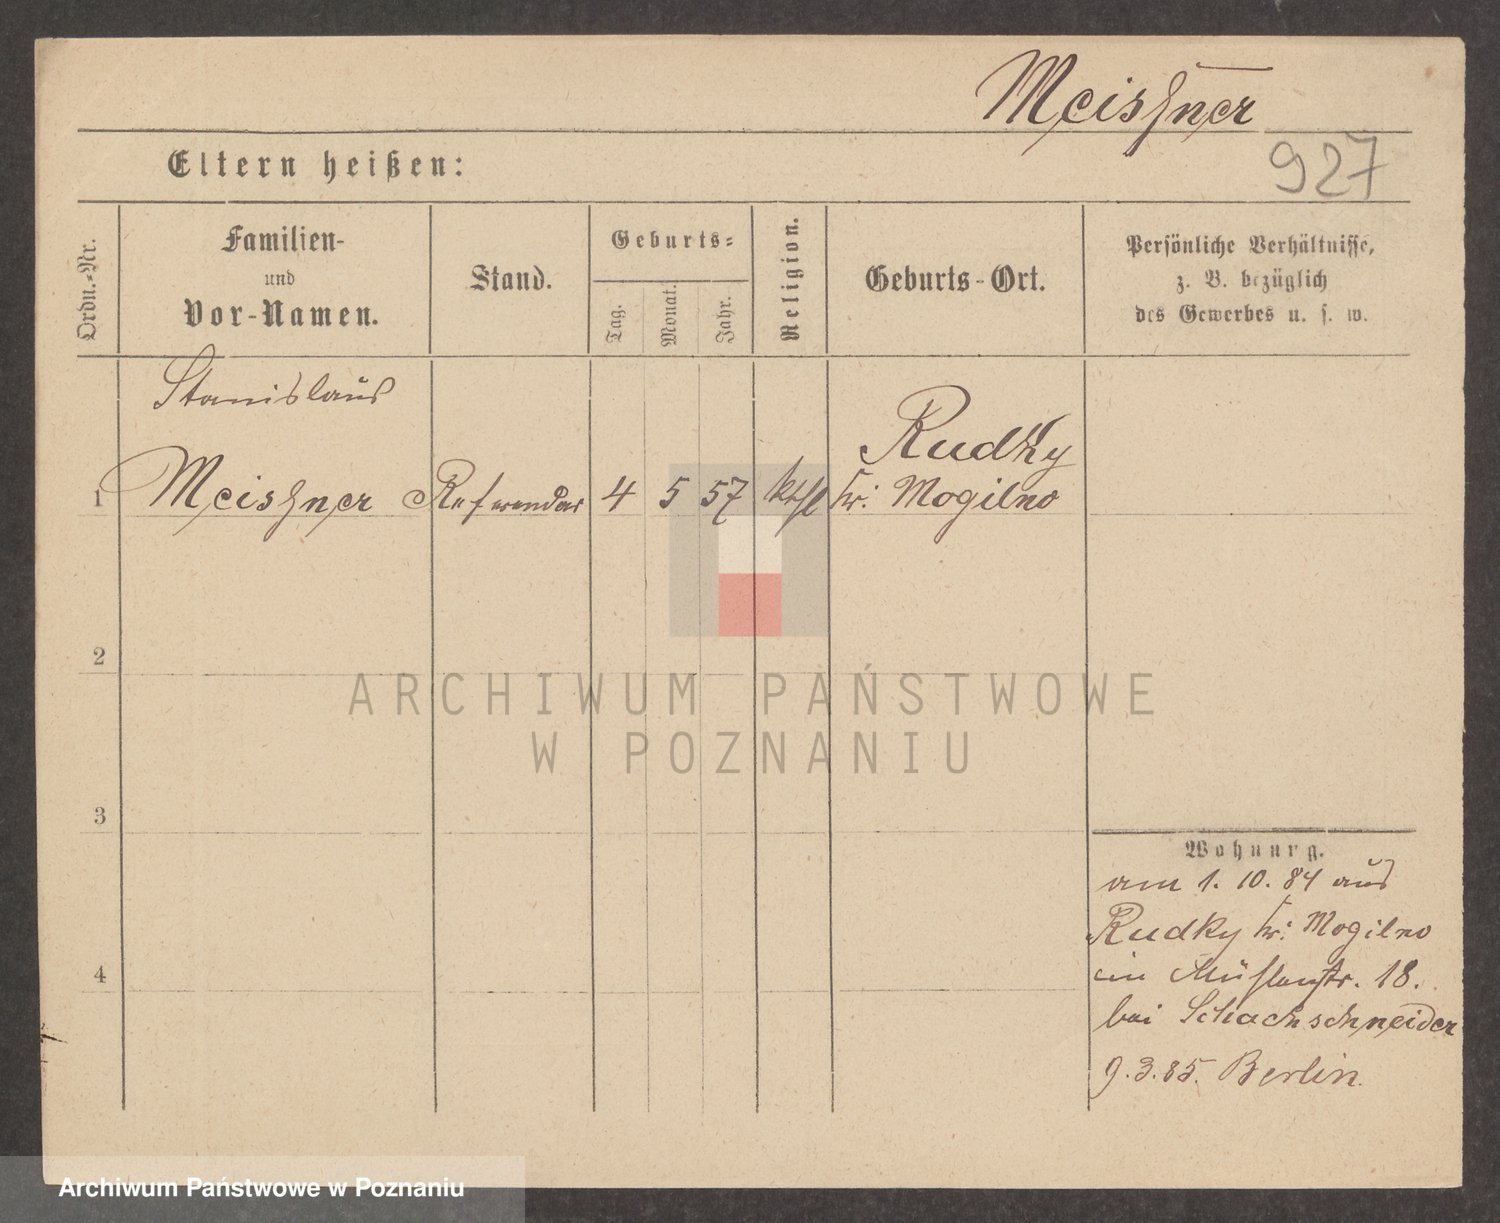 Meishner
927
Eltern heißen:
Ordn.-Nr.
Familien-
und
Vor-Namen.
Stand.
Geburts-
Tag.
Monat.
Jahr.
Religion.
Geburts-Ort.
Persönliche Verhältnisse,
z. B. bezüglich
des Gewerbes u. s. w.
Stanislaus
1 Meishner Referendar 4 5 57 kthl Rudky
Kr. Mogilno
2
3
4
Wohnung.
am 1. 10. 84 aus
Rudky Kr. Mogilno
in Mühlenstr. 18.
bei Schachschneider
9.3.85. Berlin.
ARCHIWUM PAŃSTWOWE
W POZNANIU
Archiwum Państwowe w Poznaniu